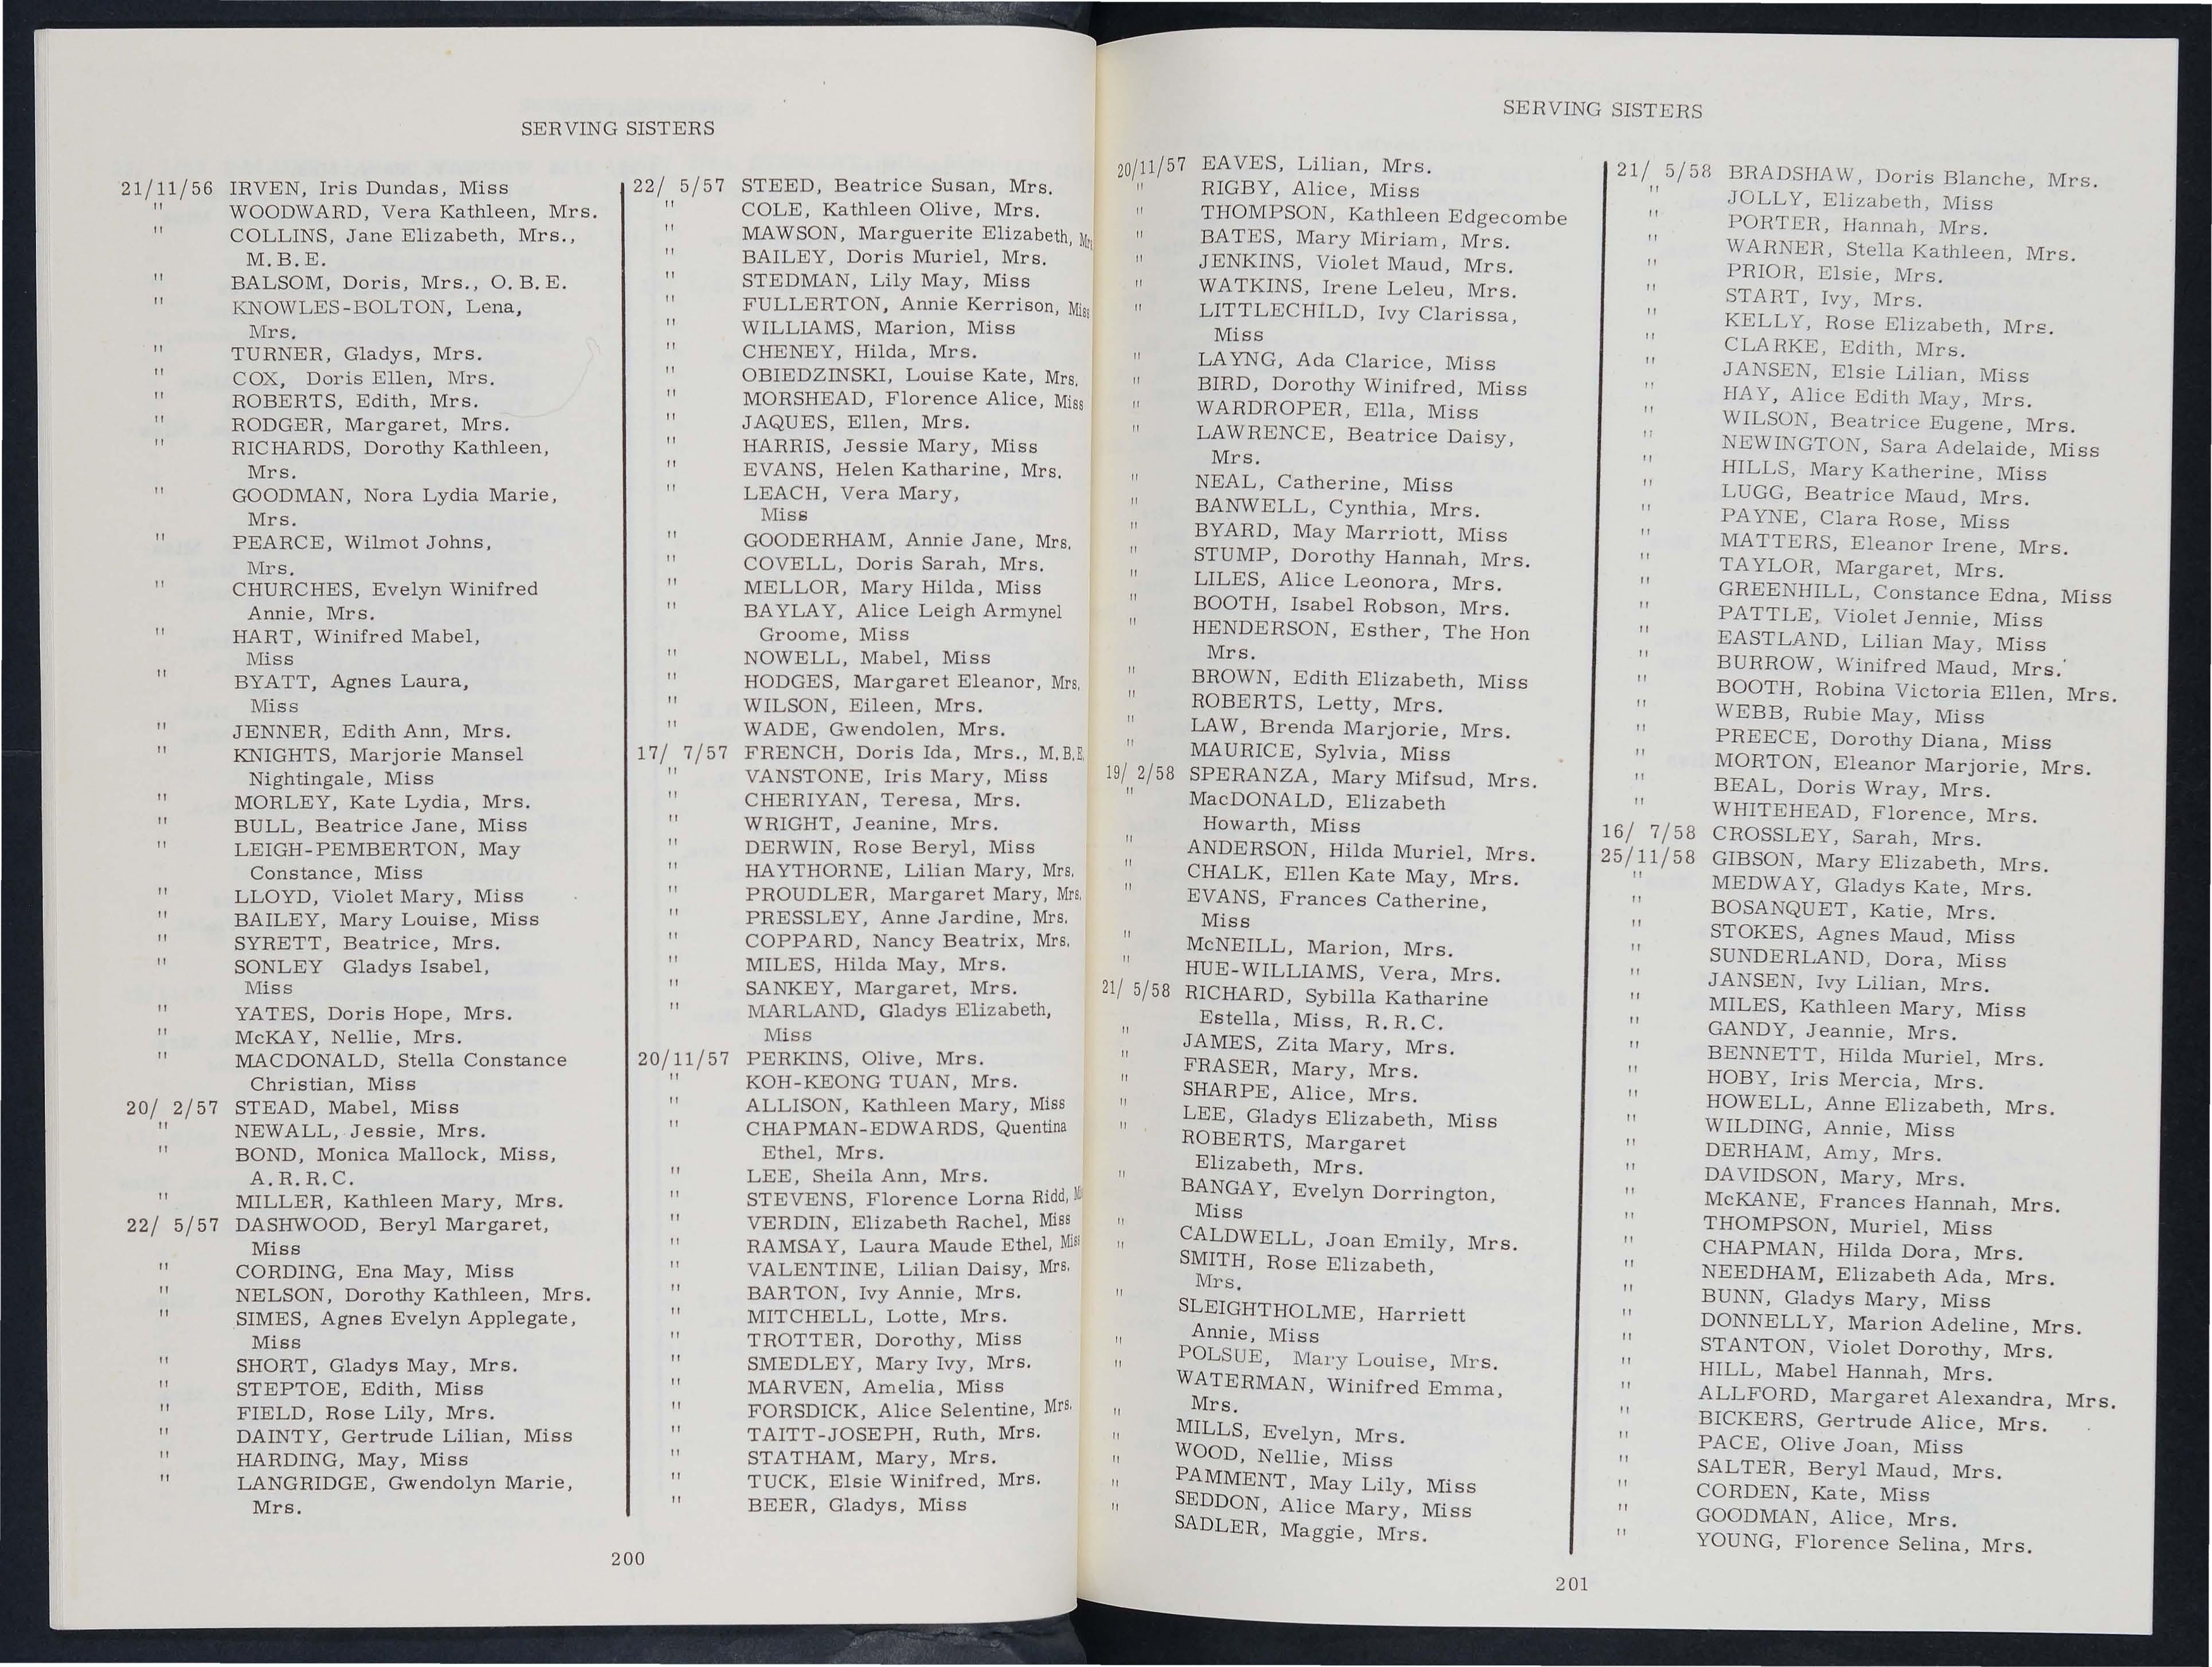 SERVING SISTERS
21/11/56 IRVEN, Iris Dundas, Miss
" WOODWARD, Vera Kathleen, Mrs.
" COLLINS, Jane Elizabeth, Mrs.,
M.B.E.
" BALSOM, Doris, Mrs., O.B.E.
" KNOWLES-BOLTON, Lena,
Mrs.
" TURNER, Gladys, Mrs.
" COX, Doris Ellen, Mrs.
" ROBERTS, Edith, Mrs.
" RODGER, Margaret, Mrs.
" RICHARDS, Dorothy Kathleen,
Mrs.
" GOODMAN, Nora Lydia Marie,
Mrs.
" PEARCE, Wilmot Johns,
Mrs.
" CHURCHES, Evelyn Winifred
Annie, Mrs.
" HART, Winifred Mabel,
Miss
" BYATT, Agnes Laura,
Miss
" JENNER, Edith Ann, Mrs.
" KNIGHTS, Marjorie Mansel
Nightingale, Miss
" MORLEY, Kate Lydia, Mrs.
" BULL, Beatrice Jane, Miss
" LEIGH-PEMBERTON, May
Constance, Miss
" LLOYD, Violet Mary, Miss
" BAILEY, Mary Louise, Miss
" SYRETT, Beatrice, Mrs.
" SONLEY Gladys Isabel,
Miss
" YATES, Doris Hope, Mrs.
" McKAY, Nellie, Mrs.
" MACDONALD, Stella Constance
Christian, Miss
20/ 2/57 STEAD, Mabel, Miss
" NEWALL, Jessie, Mrs.
" BOND, Monica Mallock, Miss,
A.R.R.C.
" MILLER, Kathleen Mary, Mrs.
22/ 5/57 DASHWOOD, Beryl Margaret,
Miss
" CORDING, Ena May, Miss
" NELSON, Dorothy Kathleen, Mrs.
" SIMES, Agnes Evelyn Applegate,
Miss
" SHORT, Gladys May, Mrs.
" STEPTOE, Edith, Miss
" FIELD, Rose Lily, Mrs.
" DAINTY, Gertrude Lilian, Miss
" HARDING, May, Miss
" LANGRIDGE, Gwendolyn Marie,
Mrs.
22/ 5/57 STEED, Beatrice Susan, Mrs.
" COLE, Kathleen Olive, Mrs.
" MAWSON, Marguerite Elizabeth, Mrs
" BAILEY, Doris Muriel, Mrs.
" STEDMAN, Lily May, Miss
" FULLERTON, Annie Kerrison, Miss
" WILLIAMS, Marion, Miss
" CHENEY, Hilda, Mrs.
" OBIEDZINSKI, Louise Kate, Mrs.
" MORSHEAD, Florence Alice, Miss
" JAQUES, Ellen, Mrs.
" HARRIS, Jessie Mary, Miss
" EVANS, Helen Katharine, Mrs.
" LEACH, Vera Mary,
Miss
" GOODERHAM, Annie Jane, Mrs.
" COVELL, Doris Sarah, Mrs.
" MELLOR, Mary Hilda, Miss
" BAYLAY, Alice Leigh Armynel
Groome, Miss
" NOWELL, Mabel, Miss
" HODGES, Margaret Eleanor, Mrs.
" WILSON, Eileen, Mrs.
" WADE, Gwendolen, Mrs.
17/ 7/57 FRENCH, Doris Ida, Mrs., M.B.E.
" VANSTONE, Iris Mary, Miss
" CHERIYAN, Teresa, Mrs.
" WRIGHT, Jeanine, Mrs.
" DERWIN, Rose Beryl, Miss
" HAYTHORNE, Lilian Mary, Mrs.
" PROUDLER, Margaret Mary, Mrs.
" PRESSLEY, Anne Jardine, Mrs.
" COPPARD, Nancy Beatrix, Mrs.
" MILES, Hilda May, Mrs.
" SANKEY, Margaret, Mrs.
" MARLAND, Gladys Elizabeth,
Miss
20/11/57 PERKINS, Olive, Mrs.
" KOH-KEONG TUAN, Mrs.
" ALLISON, Kathleen Mary, Miss
" CHAPMAN-EDWARDS, Quentina
Ethel, Mrs.
" LEE, Sheila Ann, Mrs.
" STEVENS, Florence Lorna Ridd,
" VERDIN, Elizabeth Rachel, Miss
" RAMSAY, Laura Maude Ethel, Miss
" VALENTINE, Lilian Daisy, Mrs.
" BARTON, Ivy Annie, Mrs.
" MITCHELL, Lotte, Mrs.
" TROTTER, Dorothy, Miss
" SMEDLEY, Mary Ivy, Mrs.
" MARVEN, Amelia, Miss
" FORSDICK, Alice Selentine, Mrs.
" TAITT-JOSEPH, Ruth, Mrs.
" STATHAM, Mary, Mrs.
" TUCK, Elsie Winifred, Mrs.
" BEER, Gladys, Miss
200
SERVING SISTERS
20/11/57 EAVES, Lilian, Mrs.
" RIGBY, Alice, Miss
" THOMPSON, Kathleen Edgecombe
" BATES, Mary Miriam, Mrs.
" JENKINS, Violet Maud, Mrs.
" WATKINS, Irene Leleu, Mrs.
" LITTLECHILD, Ivy Clarissa,
Miss
" LAYNG, Ada Clarice, Miss
" BIRD, Dorothy Winifred, Miss
" WARDROPER, Ella, Miss
" LAWRENCE, Beatrice Daisy,
Mrs.
" NEAL, Catherine, Miss
" BANWELL, Cynthia, Mrs.
" BYARD, May Marriott, Miss
" STUMP, Dorothy Hannah, Mrs.
" LILES, Alice Leonora, Mrs.
" BOOTH, Isabel Robson, Mrs.
" HENDERSON, Esther, The Hon
Mrs.
" BROWN, Edith Elizabeth, Miss
" ROBERTS, Letty, Mrs.
" LAW, Brenda Marjorie, Mrs.
" MAURICE, Sylvia, Miss
19/ 2/58 SPERANZA, Mary Mifsud, Mrs.
" MacDONALD, Elizabeth
Howarth, Miss
" ANDERSON, Hilda Muriel, Mrs.
" CHALK, Ellen Kate May, Mrs.
" EVANS, Frances Catherine,
Miss
" McNEILL, Marion, Mrs.
" HUE-WILLIAMS, Vera, Mrs.
21/ 5/58 RICHARD, Sybilla Katharine
Estella, Miss, R.R.C.
" JAMES, Zita Mary, Mrs.
" FRASER, Mary, Mrs.
" SHARPE, Alice, Mrs.
" LEE, Gladys Elizabeth, Miss
" ROBERTS, Margaret
Elizabeth, Mrs.
" BANGAY, Evelyn Dorrington,
Miss
" CALDWELL, Joan Emily, Mrs.
" SMITH, Rose Elizabeth,
Mrs.
" SLEIGHTHOLME, Harriett
Annie, Miss
" POLSUE, Mary Louise, Mrs.
" WATERMAN, Winifred Emma,
Mrs.
" MILLS, Evelyn, Mrs.
" WOOD, Nellie, Miss
" PAMMENT, May Lily, Miss
" SEDDON, Alice Mary, Miss
" SADLER, Maggie, Mrs.
21/ 5/58 BRADSHAW, Doris Blanche, Mrs.
" JOLLY, Elizabeth, Miss
" PORTER, Hannah, Mrs.
" WARNER, Stella Kathleen, Mrs.
" PRIOR, Elsie, Mrs.
" START, Ivy, Mrs.
" KELLY, Rose Elizabeth, Mrs.
" CLARKE, Edith, Mrs.
" JANSEN, Elsie Lilian, Miss
" HAY, Alice Edith May, Mrs.
" WILSON, Beatrice Eugene, Mrs.
" NEWINGTON, Sara Adelaide, Miss
" HILLS, Mary Katherine, Miss
" LUGG, Beatrice Maud, Mrs.
" PAYNE, Clara Rose, Miss
" MATTERS, Eleanor Irene, Mrs.
" TAYLOR, Margaret, Mrs.
" GREENHILL, Constance Edna, Miss
" PATTLE, Violet Jennie, Miss
" EASTLAND, Lilian May, Miss
" BURROW, Winifred Maud, Mrs.
" BOOTH, Robina Victoria Ellen, Mrs.
" WEBB, Rubie May, Miss
" PREECE, Dorothy Diana, Miss
" MORTON, Eleanor Marjorie, Mrs.
" BEAL, Doris Wray, Mrs.
" WHITEHEAD, Florence, Mrs.
16/ 7/58 CROSSLEY, Sarah, Mrs.
25/11/58 GIBSON, Mary Elizabeth, Mrs.
" MEDWAY, Gladys Kate, Mrs.
" BOSANQUET, Katie, Mrs.
" STOKES, Agnes Maud, Miss
" SUNDERLAND, Dora, Miss
" JANSEN, Ivy Lilian, Mrs.
" MILES, Kathleen Mary, Miss
" GANDY, Jeannie, Mrs.
" BENNETT, Hilda Muriel, Mrs.
" HOBY, Iris Mercia, Mrs.
" HOWELL, Anne Elizabeth, Mrs.
" WILDING, Annie, Miss
" DERHAM, Amy, Mrs.
" DAVIDSON, Mary, Mrs.
" McKANE, Frances Hannah, Mrs.
" THOMPSON, Muriel, Miss
" CHAPMAN, Hilda Dora, Mrs.
" NEEDHAM, Elizabeth Ada, Mrs.
" BUNN, Gladys Mary, Miss
" DONNELLY, Marion Adeline, Mrs.
" STANTON, Violet Dorothy, Mrs.
" HILL, Mabel Hannah, Mrs.
" ALLFORD, Margaret Alexandra, Mrs.
" BICKERS, Gertrude Alice, Mrs.
" PACE, Olive Joan, Miss
" SALTER, Beryl Maud, Mrs.
" CORDEN, Kate, Miss
" GOODMAN, Alice, Mrs.
" YOUNG, Florence Selina, Mrs.
201